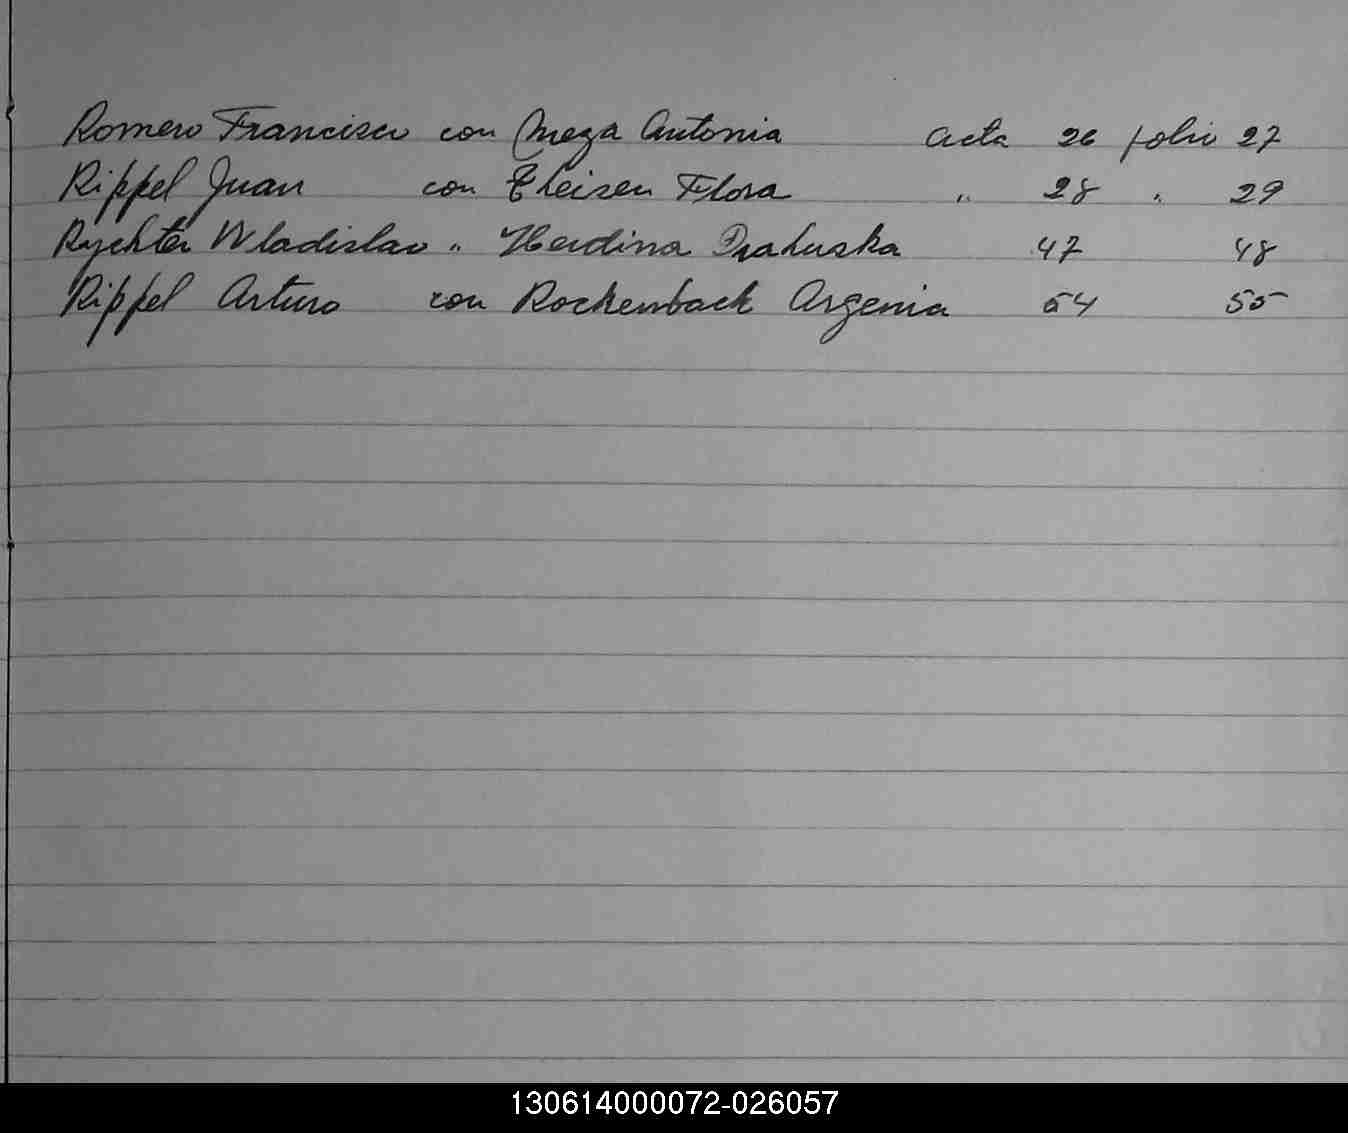 Romero Francisco con Meza Antonia acta 26 folio 27
Rippel Juan con Theisen Flora " 28 " 29
Rychter Wladislao " Herdina 47 48
Rippel Arturo con Rockenback Argenia 54 55
130614000072-026057